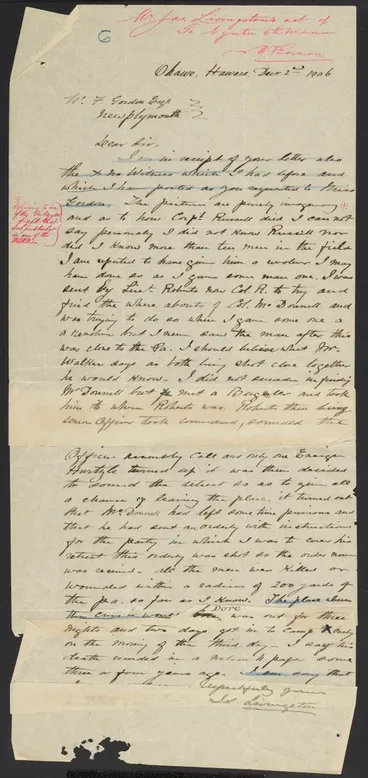 Mr Jas Livingston's act of
Te Ngutu
6
Okawa, Hawera Decr 2nd 1906
W. F. Gordon Esqr
New Plymouth
Dear Sir,
I am in receipt of your letter also
the Witness which I had before and
which I have posted as you requested to Miss
The picture are purely imaginary
and as to how Corpl. Russell died I can not
say personaly I did not know Russell nor
did I know more than ten men in the field
I am reputed to have given him a revolver I may
have done so as I gave some man one. I was
sent by Lieut. Roberts now Col. R. to try and
find the where abouts of Col. McDonnell and
was trying to do so when I gave some one a
a revolver but I never saw the man after this
was close to the Pa. I should believe what Mr.
Walker says as both being shot close together
he would know. I did not succeed in finding
McDonnell but met a Bugler and took
him to where Roberts was. Roberts then being
senior Officer took command, sounded the
Officers assembly call and only one Ensign
Hirtzle turned up it was then decided
to sound the retreat so as to give all
a chance of leaving the place, it turned out
that McDonnell had left some time previous and
that he had sent an orderly with instructions
for the party in which I was to cover his
retreat this orderly was shot so the order never
was received. All the men was killed or
wounded within a radius of 200 yards of
the pa. so far as I know. The place where
Dore
was out for three
nights and two days got in to Camp early
on the morning of the third day - I saw his
death in a paper some
three or four years ago. I am sorry that
respectfully yours
Jas Livingston